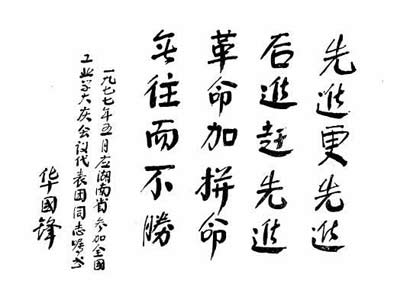 先進更先進
后進趕先進
革命加拼命
无往而不勝
一九七七年五月应湖南省参加全国
工业学大庆会议代表团同志嘱书
华國锋